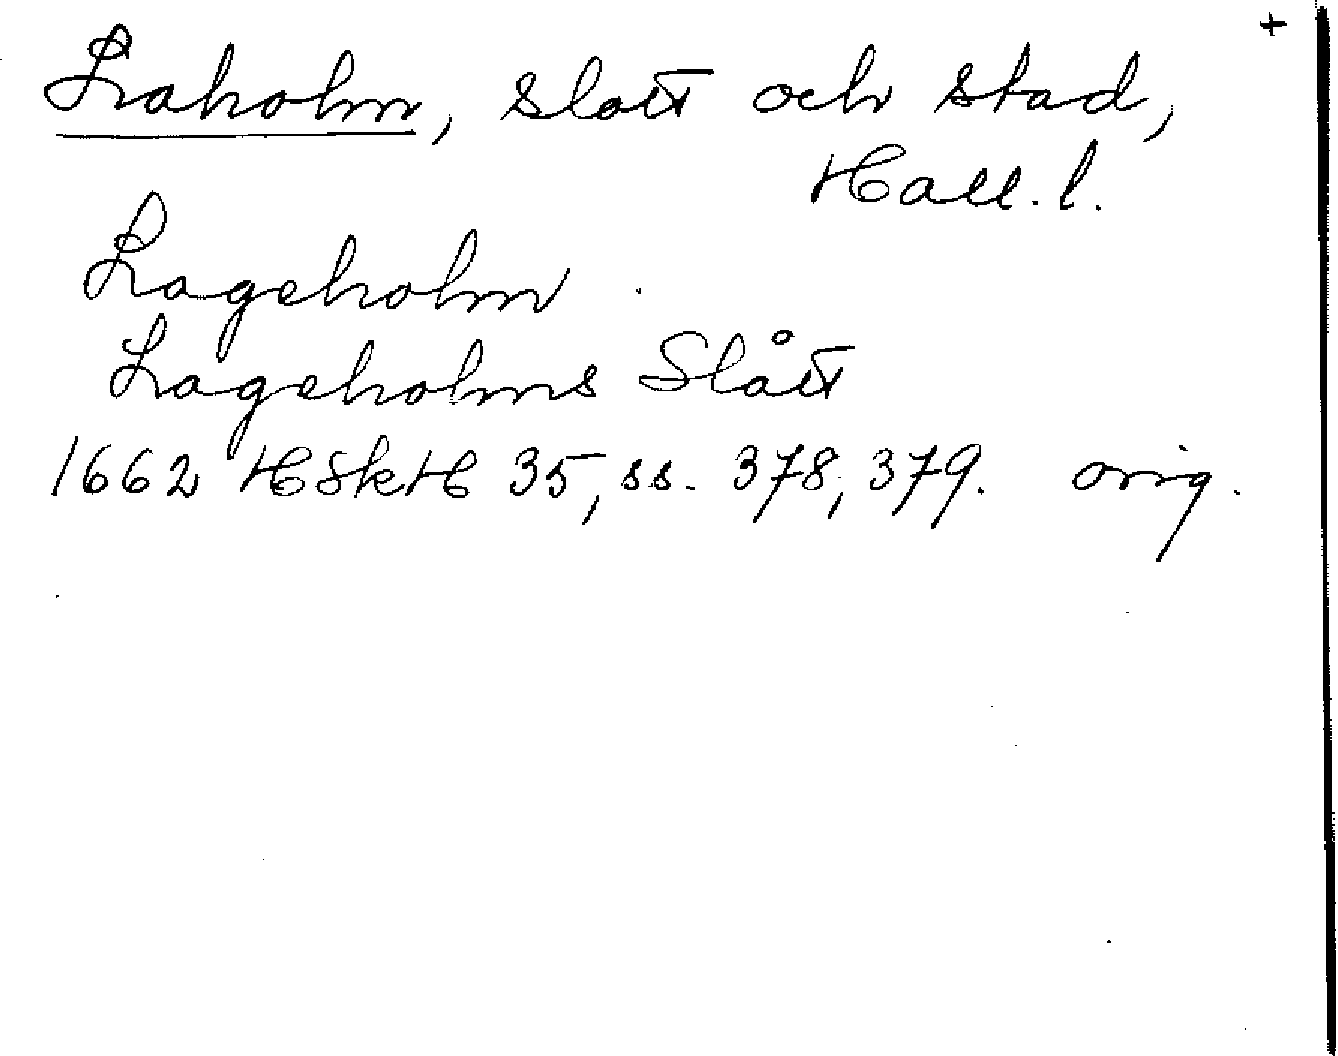 +
Laholm, slott och stad,
Hall. l.
Lageholm
Lageholms Slått
1662 HSkH 35, ss. 378, 379. orig.